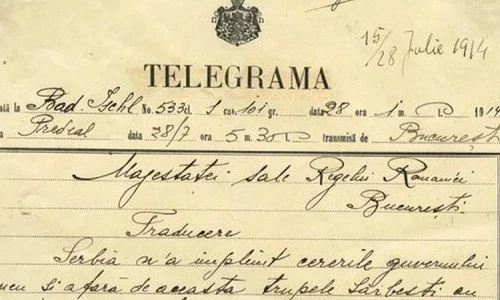 15/28 Julie 1914
TELEGRAMA
tă la Bad. Ischl No. 533 cl. 1 cuv. 101 gr. data 28 ora 1 m. D 191
a Predeal data 28/7 ora 5 m. 30 D transmisă de Bucureșt
Majestatei sale Regelui României
București
Traducere
Serbia n'a împlinit cererile guvernului
meu și afară de aceasta trupele sârbești au